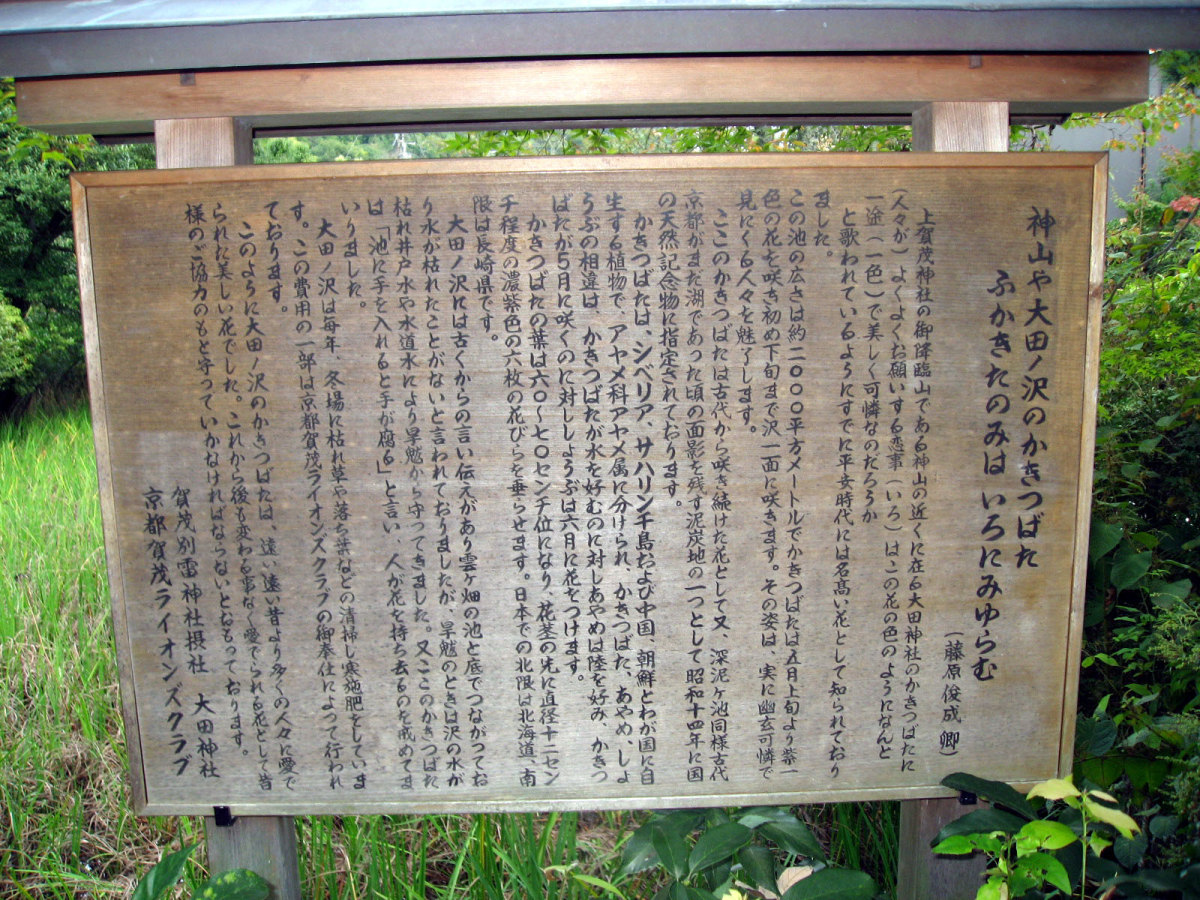 神山や大田ノ沢のかきつばた
ふかきたのみは いろにみゆらむ
(藤原俊成 卿)
上賀茂神社の御降臨山である神山の近くに在る大田神社のかきつばたに
(人々が) よくよくお願いする恋事(いろ)はこの花の色のようになんと
一途(一色)で美しく可憐なのだろうか
と歌われているようにすでに平安時代には名高い花として知られており
ました。
この池の広さは約二〇〇〇平方メートルでかきつばたは五月上旬より紫一
色の花を咲き初め下旬まで沢一面に咲きます。その姿は、実に幽玄可憐で
見にくる人々を魅了します。
ここのかきつばたは古代から咲き続けた花として又、深泥ヶ池同様古代
京都がまだ湖であった頃の面影を残す泥炭地の一つとして昭和十四年に国
の天然記念物に指定されております。
かきつばたは、シベリア、サハリン千島および中国、朝鮮とわが国に自
生する植物で、アヤメ科アヤメ属に分けられ、かきつばた、あやめ、しょ
うぶの相違は、かきつばたが水を好むのに対しあやめは陸を好み、かきつ
ばたが5月に咲くのに対ししょうぶは六月に花をつけます。
かきつばたの葉は六〇～七〇センチ位になり、花茎の先に直径十二セン
チ程度の濃紫色の六枚の花びらを垂らせます。日本での北限は北海道、南
限は長崎県です。
大田ノ沢には古くからの言い伝えがあり雲ヶ畑の池と底でつながってお
り水が枯れたことがないと言われておりましたが、旱魃のときは沢の水が
枯れ井戸水や水道水により旱魃から守ってきました。又ここのかきつばた
は「池に手を入れると手が腐る」と言い、人が花を持ち去るのを戒めてま
いりました。
大田ノ沢は毎年、冬場に枯れ草や落ち葉などの清掃し寒施肥をしていま
す。この費用の一部は京都賀茂ライオンズクラブの御奉仕によって行われ
ております。
このように大田ノ沢のかきつばたは、遠い遠い昔より多くの人々に愛で
られた美しい花でした。これから後も変わる事なく愛でられる花として皆
様のご協力のもと守っていかなければならないとおもっております。
賀茂別雷神社摂社 大田神社
京都賀茂ライオンズクラブ